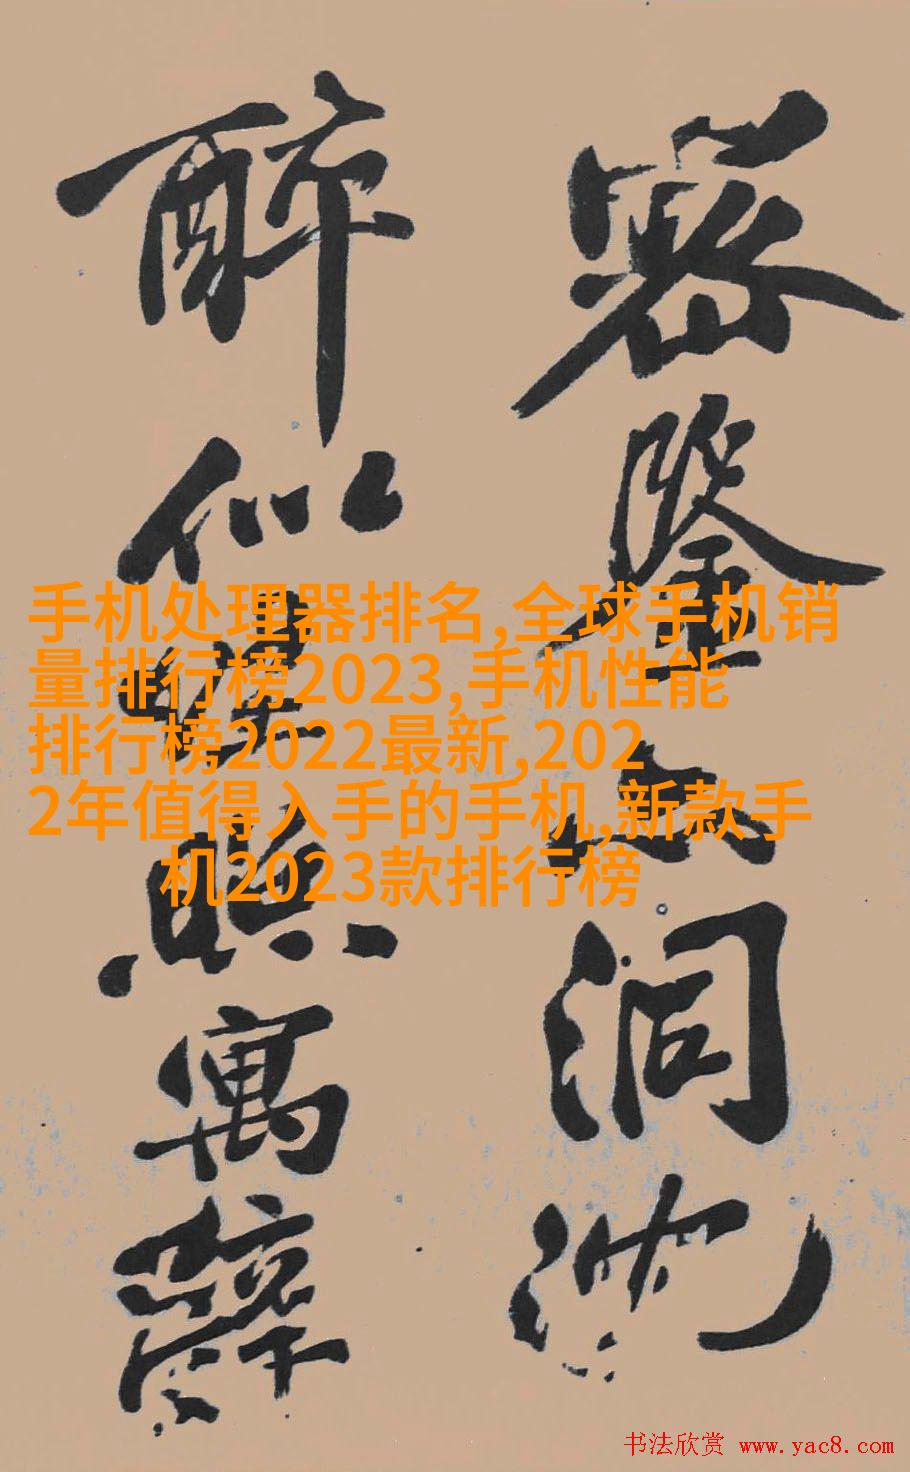 密鑒亦洞沈
醉似埋照寓辭
手机处理器排名,全球手机销
量排行榜2023,手机性能
排行榜2022最新,202
2年值得入手的手机,新款手
机2023款排行榜
书法欣赏 www.yac8.com